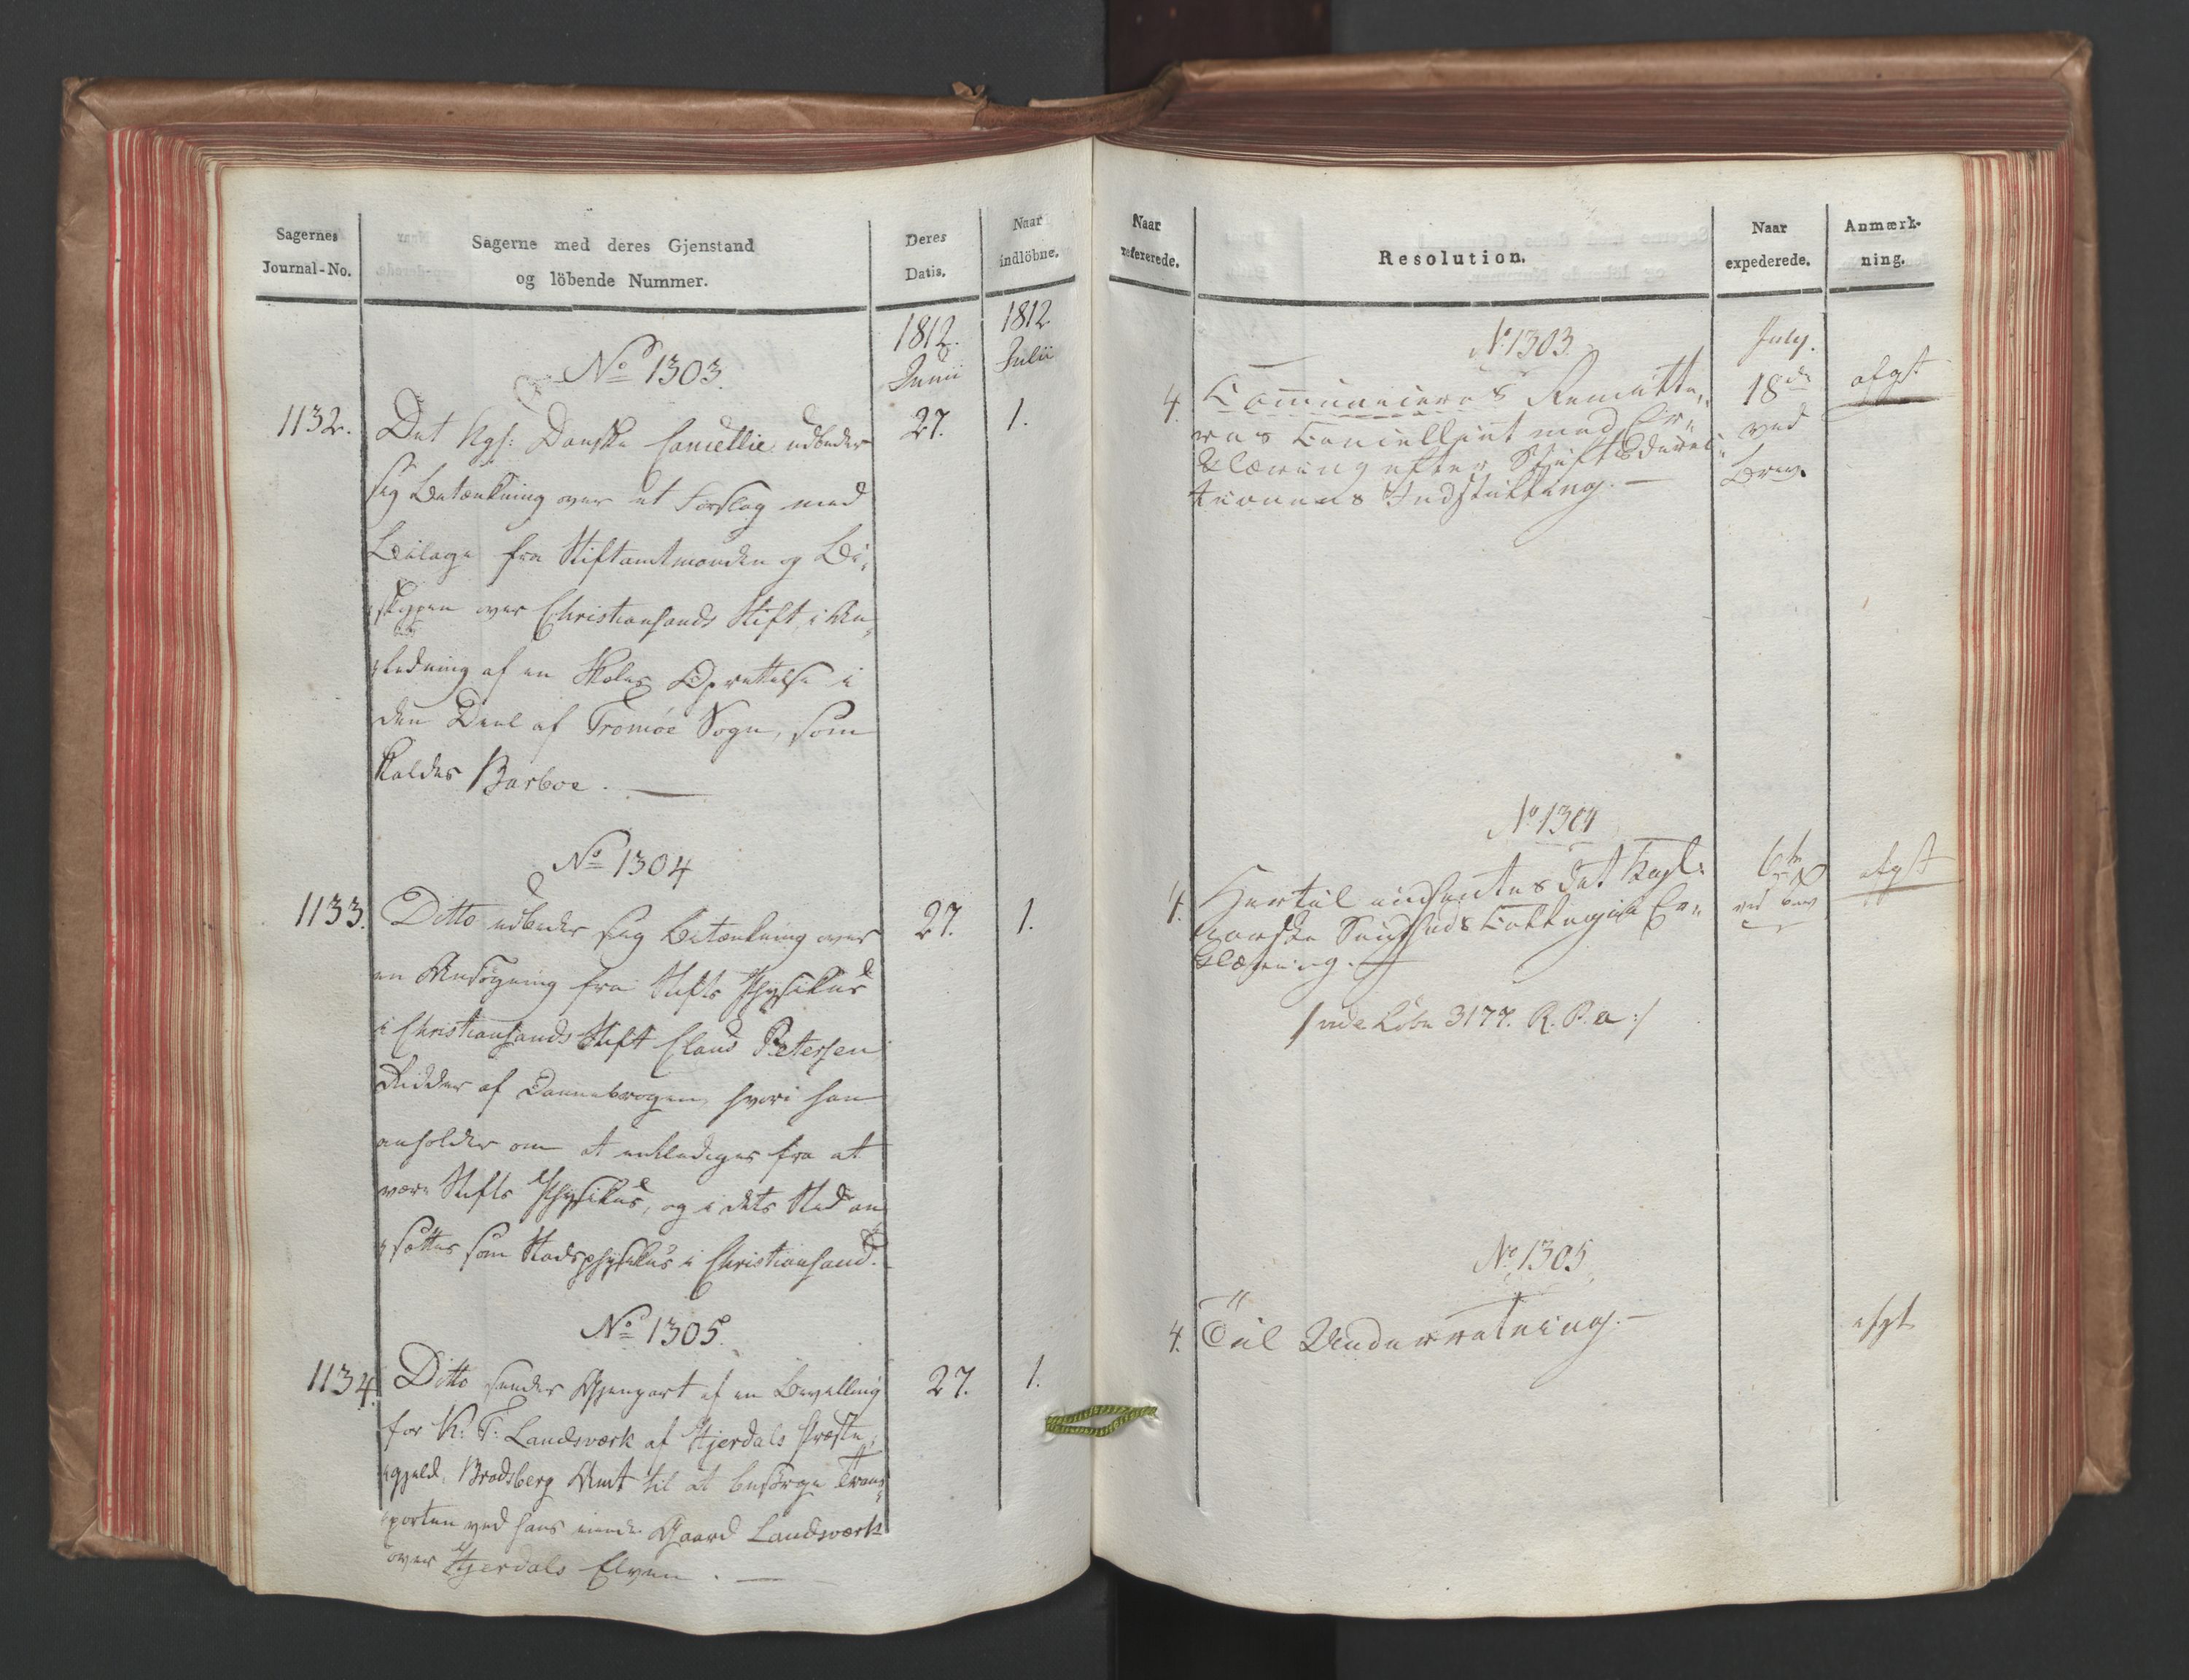 Sagernes
Journal-No.
Sagerne med deres Gjenstand
og löbende Nummer.
Deres
Datis.
Naar
indlöbne.
1812.
Junii
1812
Julii
No 1303.
1132.
27.
1.
Det Kgl: Danske Cancellie udbeder
sig Betænkning over et Forslag med
Beilage fra Stiftamtmanden og Bi-
skoppen over Christiansands Stift, i An-
ledning af en Skoles Oprettelse i
den Deel af Tromöe Sogn, som
kaldes Barboe.
No 1304
1133.
27.
1.
Ditto udbeder sig Betænkning over
en Ansögning fra Stifts Physikus
i Christiansands Stift Claus Petersen
Ridder af Dannebrogen hvori han
anholder om at entlediges fra at
være Stifts Physikus, og i dets Sted an-
sættes som Stadsphysikus i Christiansand.
No 1305.
1134.
27.
1.
Ditto sender Gjenpart af en Bevilling
for K: T: Landsværk af Hjerdals Præste-
gjeld, Bradsberg Amt til at besörge Trans-
porten ved hans eiende Gaard Landsværk
over Hjerdals Elven.
Naar
refererede.
Resolution.
Naar
expederede.
Anmærk-
ning.
No 1303.
July.
4.
Communiceres Remitte-
res Cancelliet med Er-
klæring efter Stiftsdirec-
tionens Indstilling.
18de
ved
Brev.
afgt
No 1304
4.
Hertil indhentes det Kongl:
norske Sundheds Collegiu Er-
klæring.
/vide Löbe 3177. R. P. a:/
6te
ved brev
afgt
No 1305
4.
Til Underretning.
afgt